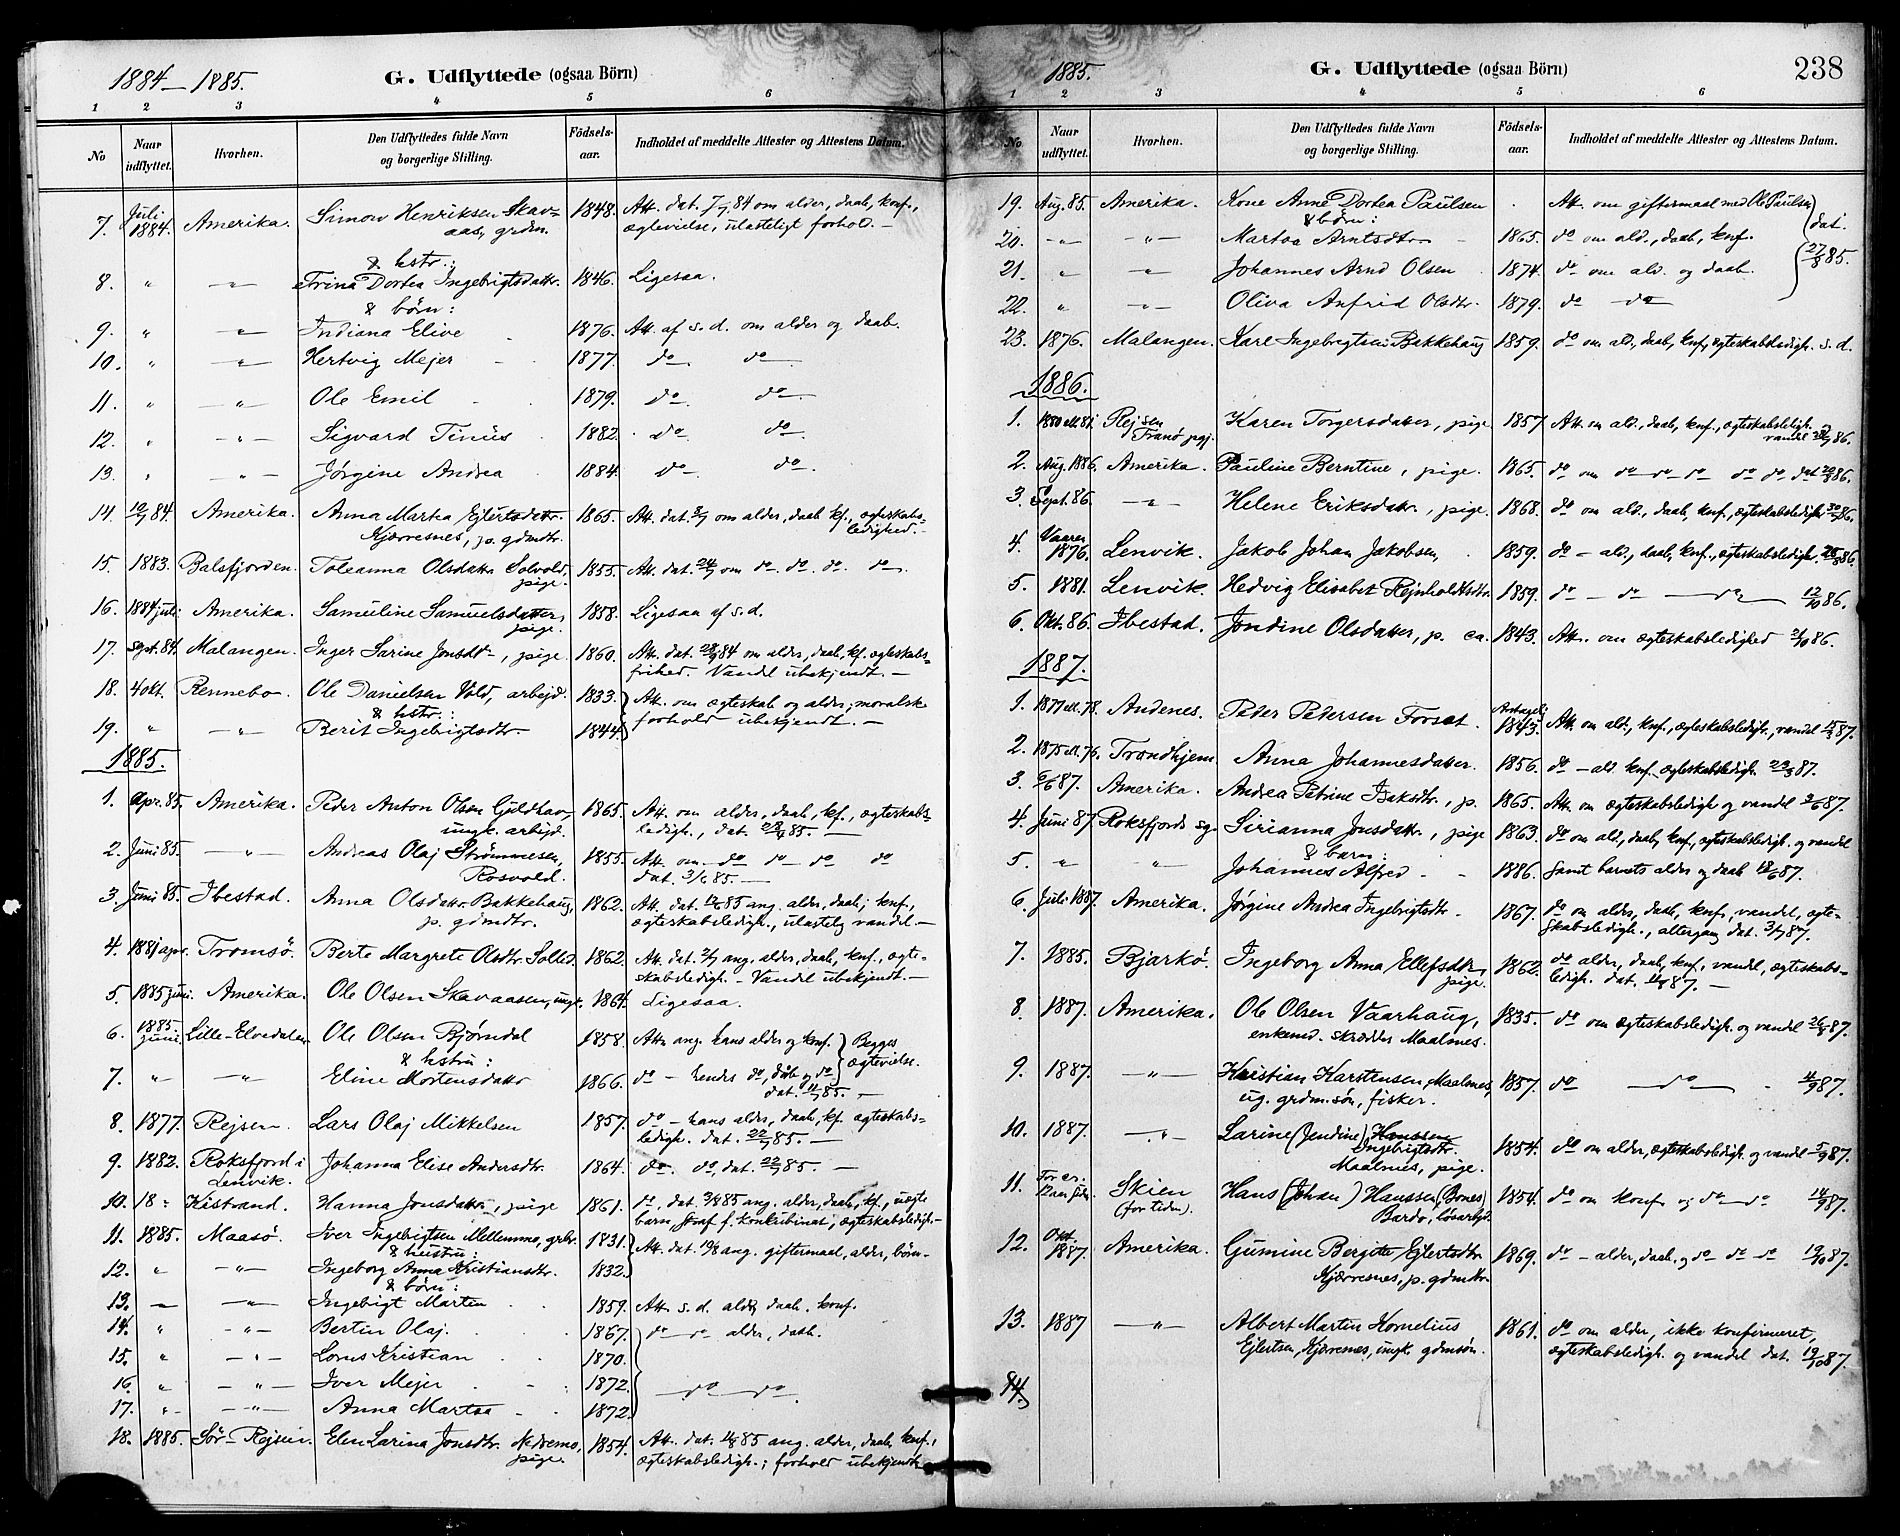 1884 — 1885.
G. Udflyttede (ogsaa Börn)
1 2 3 4 5 6
No
Naar udflyttet.
Hvorhen.
Den Udflyttedes fulde Navn og borgerlige Stilling.
Födsels-aar.
Indholdet af meddelte Attester og Attestens Datum.
7. Juli 1884. Amerika. Simon Henriksen Skav- 1848. Att. dat. 7/7 84 om alder, daab, konf.,
aas, grdm. ægtevielse, ulasteligt forhold. —
& hstr.:
8. " —"— Trina Dortea Ingebrigtsdattr. 1846. Ligesaa.
& børn:
9. " —"— Indiana Elive 1876. Att. af s. d. om alder og daab.
10. " —"— Hertvig Mejer 1877. do do
11. " —"— Ole Emil 1879. do. do.
12. " —"— Sigvard Tinius 1882. do do.
13. " —"— Jørgine Andrea 1884. do do.
14. 10/7 84. Amerika. Anna Martha Ejlertsdattr. 1865. Att. dat. 9/7 om alder, daab kf., ægteskabs-
Kjærresnes, p. gdmdtr. ledighed. —
15. 1883. Balsfjorden. Toleanna Olsdattr Solvold, 1855. Att. dat. 24/7 om do. do. do. do.
pige.
16. 1884 juli Amerika. Samuline Samuelsdatter, 1858. Ligesaa af s. d.
pige.
17. Sept. 84. Malangen. Inger Sarine Jonsdtr, pige. 1860. Att. dat. 28/9 84 om alder, daab, kf. ægteskabs-
frihed. Vandel ubekjendt. —
18. 4 okt. Rennebo. Ole Danielsen Vold, arbejd. 1833. Att. om ægteskab og alder; moralsk
& hstr.: forhold ubekjendt. —
19. " —"— Berit Ingebrigtsdtr. 1844.
1885.
1. Apr. 85. Amerika. Peder Anton Olsen Gjeldhav, 1865. Att. om alder, daab, kf., ægteskabs-
ungk. arbejd. ledigh., dat. 23/4 85. —
2. Juni 85. —"— Andreas Olaj Strømmesen, 1855. Att. om do do do do
Rosvold. dat. 3/6 85. —
3. Juni 85. Ibestad. Anna Olsdattr Bakkehaug, 1862. Att. dat. 12/6 85 ang. alder, daab, konf.,
p. gdmdtr. ægteskabsledigh., ulastelig vandel —
4. 1881 apr. Tromsö. Berte Margrete Olsdtr. Solled. 1862. Att. dat. 2/7 ang. alder, daab, knf., ægte-
skabsledigh. — Vandel ubekjendt. —
5. 1885 juni. Amerika. Ole Olsen Skavaasen, ungk. 1864. Ligesaa.
6. 1885. juni. Lille-Elvedalen Ole Olsen Bjørndal 1858. Attr ang. hans alder og konf. Begges
& hstru: ægtevielse.
7. " —"— Eline Mortensdattr 1866. do — hendes do, dåb og do
dat. 11/7 85. —
8. 1877. Rejsen. Lars Olaj Mikkelsen 1857. do — hans alder, daab, kf. ægteskabs-
ledigh. dat. 22/7 85. —
9. 1882. Roksfjord i Johanna Elise Andersdtr. 1864. do. do. dat. 22/7 85. —
Lenvik.
10. 18 " Kistrand. Hanna Jonsdattr, pige 1861. do, dat. 3/8 85 ang. alder, daab, kf., uægte
barn, straf f. konkubinat, ægteskabsledigh. —
11. 1885. Maasö. Iver Ingebrigtsen Mellemmo, grbr. 1831. Att. dat. 10/8 ang. giftermaal, alder, børn —
& hustru:
12. " —"— Ingeborg Anna Kristiansdtr. 1832.
& börn:
13. " —"— Ingebrigt Martin 1859. Att. s. d. alder, daab. konf.
14. " —"— Bertin Olaj. 1867. do do alder, daab.
15. " —"— Lorns Kristian 1870.
16. " —"— Iver Mejer 1872. do do.
17. " —"— Anna Martha 1872.
18. 1885. Sör-Rejsen. Elen Larina Jonsdtr. Nedremo, 1854. Att. dat. 11/8 85 ang. alder, daab, knf.,
pige. ægteskabsledigh.; forhold ubekjendt.
1885.
G. Udflyttede (ogsaa Börn)
238
1 2 3 4 5 6
No
Naar udflyttet.
Hvorhen.
Den Udflyttedes fulde Navn og borgerlige Stilling.
Födsels-aar.
Indholdet af meddelte Attester og Attestens Datum.
19. Aug. 85. Amerika. Kone Anne Dortea Paulsen . Att. om giftermaal med Ole Paulsen
& børn: dat. 27/8 85.
20. —"— —"— Martha Arntsdtr 1865. do om ald., daab, knf.
21. " —"— Johannes Arnd Olsen 1874. do om ald. og daab.
22. " —"— Oliva Anfrid Olsdtr. 1879. do do
23. 1876. Malangen. Karl Ingebrigtsen Bakkehaug 1859. do om ald., daab, knf., ægteskabsledigh. s. d.
1886.
1. 1880 ell. 81. Rejsen Karen Torgersdatter, pige 1857. Att. om ald., daab, knf., ægteskabsledigh.
Tranø pgj. vandel 86.
2. Aug. 1886. Amerika. Pauline Berntine, pige. 1865. do om do do do do do dat 20/8 86.
3. Sept. 86. —"— Helene Eriksdattr, pige. 1868. do om ald., daab, knf., ægteskabsledigh 86.
4. Vaaren 1876. Lenvik. Jakob Johan Jakobsen, 1859. do — ald., daab, knf., ægteskabsledigh. 86.
5. 1881. Lenvik. Hedvig Elisabet Rejnholdtsdtr. 1859. do — do — do — 12/10 86.
6. Okt. 86. Ibestad. Jondine Olsdatter, p. ca. 1843. Att. om ægteskabsledighed 2/10 86.
1887.
1. 1877 ell. 78. Andenes. Peder Pedersen Forset. Antagel. 1843. Att. om ald., knf., ægteskabsledigh., vandel 87.
2. 1875 ell. 76. Trondhjem Anna Johannesdatter. 1856. do — ald. knf. ægteskabsledigh. 23/3 87.
3. 6/6 87. Amerika. Andrea Petrine Isaksdtr., p. 1865. Att. om ægteskabsledigh. og vandel 87.
4. Juni 87 Roksfjords sg. Sirianna Jonsdattr., pige 1863. do om ald., daab, knf., ægteskabsledigh. og vandel
& barn:
5. " " Johannes Alfred — 1886. Samt barnets alder og daab 18/6 87.
6. Juli 1887. Amerika. Jørgine Andrea Ingebrigtsdtr. 1867. do om alder, daab, knf., vandel, ægte-
skabsledigh., altergang dat. 3/7 87.
7. 1885. Bjarkö. Ingeborg Anna Ellefsdtr, 1862. do alder, daab, knf., vandel, ægteskabs-
pige. ledigh. dat. 11/8 87. —
8. 1887. Amerika. Ole Olsen Vaarhaug, 1835. do om ægteskabsledigh. og vandel 26/8 87.
enkemd. skrædder Maalnes.
9. 1887. —"— Kristian Karstensen Maalnes, 1857. do do 4/9 87.
ug. grdm. søn, fisker.
10. 1887. —"— Larine (Jendine) Hanssen 1854. do om alder, ægteskabsledigh. og vandel 5/9 87.
Ingebrigtsdtr.
Maalnes, pige.
11. For en Skien Hans (Johan) Hanssen (Bones) 1854. do om konf. og do do 14/9 87.
Raar siden. (for tiden). Bardo, løsarbjd.
12. Okt. 1887. Amerika. Gumine Bergitte Ejlertsdtr. 1869. do — alder, daab, og do do do 19/10 87.
Kjærresnes, p. gdmdtr.
13. 1887 —"— Albert Martin Kornelius 1861. do om alder, ikke konfirmeret,
Ejlertsen, Kjærresnes, ungk. gdmsøn. ægteskabsledigh. og vandel dat. 19/10 87.
14.